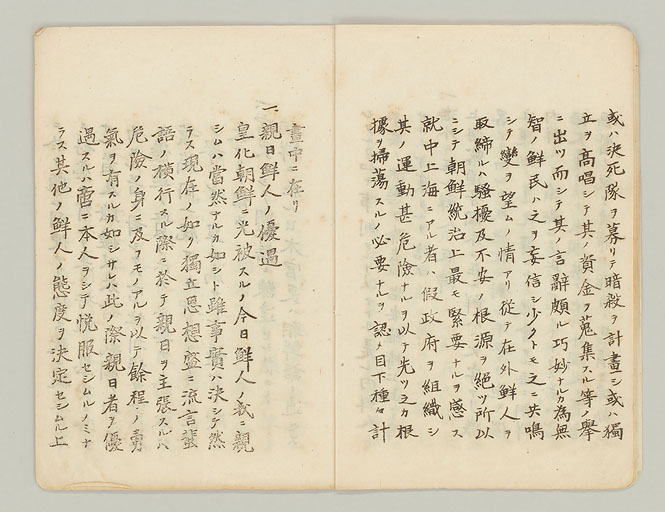 或ハ決死隊ヲ募リテ暗殺ヲ計畫シ或ハ獨
立ヲ高唱シテ其ノ資金ヲ蒐集スル等ノ擧
ニ出ツ而シテ其ノ言辭頗ル巧妙ナルカ為無
智ノ鮮民ハ之ヲ妄信シ少クトモ之ニ共鳴
シテ變ヲ望ムノ情アリ從テ在外鮮人ヲ
取締ルハ騷擾及不安ノ根源ヲ絕ツ所以
ニシテ朝鮮統治上最モ緊要ナルヲ感ス
就中上海ニアル者ハ假政府ヲ組織シ
其ノ運動甚危險ナルヲ以テ先ツ之カ根
據ヲ掃蕩スルノ必要ナルヲ認メ目下種々計
畫中ニ在リ
一、親日鮮人ノ優遇
皇化朝鮮ニ光被スルノ今日鮮人ノ我ニ親
シムハ當然ナルカ如シト雖事實ハ決シテ然
ラス現存ノ如ク獨立思想盛ニ流言蜚
語ノ橫行スル際ニ於テ親日ヲ主張スルハ
危險ノ身ニ及フモノアルヲ以テ餘程ノ勇
氣ヲ有スルカ如シサレハ此ノ際親日者ヲ優
過スルハ啻ニ本人ヲシテ悅服セシムルノミナ
ラス其他ノ鮮人ノ態度ヲ決定セシムル上